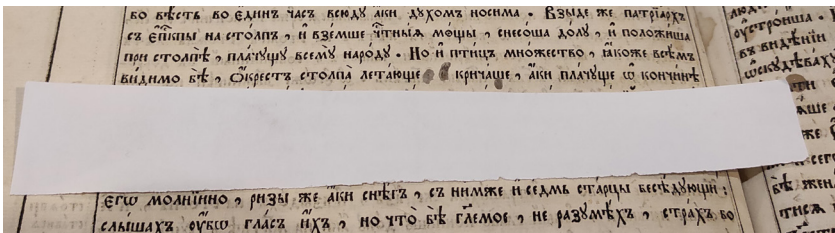 во вѣсть во єди́нъ ча́съ всю́ду а҆́ки дꙋ́хомъ носи́ма . Взы́де же патрїа́рхъ
съ є҆п҃кпы на сто́лпъ , и҆ взе́мше чⷭ҇тны́ѧ мѡ́щы , снесо́ша до́лꙋ , и҆ положи́ша
при сто́лпѣ , пла́чꙋщꙋ всемꙋ̀ наро́дꙋ . Но и҆ пти́цъ мно́жество , ꙗ҆́коже всѣ́мъ
ви́димо бѣ̀ , ѻ҆́крестъ столпа̀ лета́юще кричаще , а҆́ки пла́чꙋще ѡ҆ кончи́нѣ
є҆гѡ̀ мо́лнїйно , ри́зы же а҆́ки снѣ́гъ , съ ни́мже и҆ се́дмь ста́рцы бесѣ́дꙋющїи :
слы́шахъ ᲂу҆́бѡ гла́съ и҆́хъ , но что̀ бѣ̀ гл҃емое , не разꙋмѣ́хъ , стра́хъ бо
ᲂу҆стро́иша .
въ видѣ́нїи
ѡ҆скꙋдѣва́хꙋ